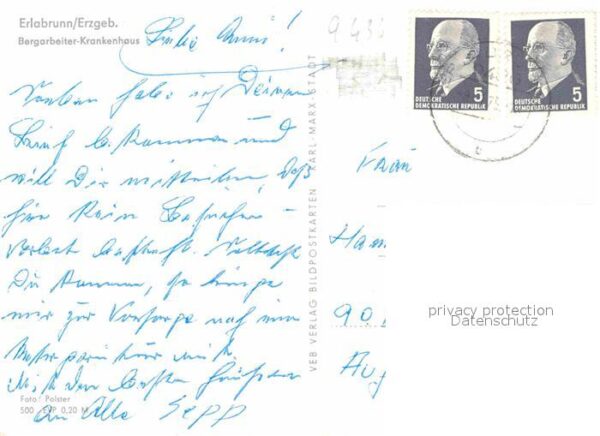 Erlabrunn/Erzgeb.
Bergarbeiter-Krankenhaus
Liebe Anni!
Vorhin habe ich Deinen
Brief bekommen und
will Dir mitteilen, daß
hier kein Besuchs-
verbot besteht. Solltest
Du kommen, so bringe
mir zur Vorsorge noch eine
mit.
Mit den besten Grüßen
an Alle Sepp
Foto: Polster
500 EVP 0,20 M
VEB VERLAG BILDPOSTKARTEN KARL-MARX-STADT
DEUTSCHE
DEMOKRATISCHE REPUBLIK 5
DEUTSCHE
DEMOKRATISCHE REPUBLIK 5
Frau
90
privacy protection
Datenschutz